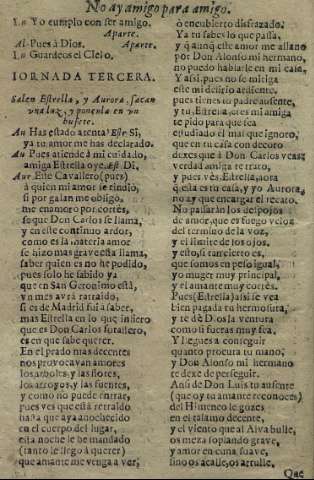 No ay amigo para amigo.
Lu Yo cumplo con ser amigo.
Aparte.
Al Pues à Dios. Aparte.
Lu Guardeos el Cielo.
IORNADA TERCERA.
Salen Estrella, y Aurora, sacan
una luz, y ponenla en un
bufete.
Au Has estado atenta? Est Sì,
ya tu amor me has declarado.
Au Pues atiende à mi cuidado,
amiga Estrella oye. Est Dì,
Aur. Este Cavallero (pues)
à quien mi amor se rindiò,
si por galan me obligò,
me enamorò por cortès,
se que Don Carlos se llama,
y en este continuo ardor,
como es la materia amor
se hizo mas grave esta llama,
saber quien es no he podido,
pues solo he sabido ya
que en San Geronimo està,
un mes avrà retraido,
si es de Madrid fui à saber,
mas Estrella en lo que infiero
que es Don Carlos forastero,
es en que sabe querer.
En el prado mas decentes
nos provocavan amores
los arboles, y las flores,
los arroyos, y las fuentes,
y como no puede entrar,
pues ves que està retraido
hasta que aya anochecido
en el cuerpo del lugar,
esta noche le he mandado
(tanto le llego à querer)
que amante me venga a ver,
ò encubierto disfrazado.
Ya tu sabes lo que passa,
y q̃ aunq̃ este amor me allano
por Don Alonso mi hermano,
no puedo hablarle en mi casa,
Y assi, pues no se mitiga
este mi delirio ardiente,
pues tienes tu padre ausente,
y tu, Estrella, eres mi amiga
te pido para que sea
estudiado el mal que ignoro,
que en tu casa con decoro
dexes que à Don Carlos vea:
verdad amiga te trato,
y pues vès, Estrella, aora
q̃ esta es tu casa, y yo Aurora,
no ay que encargar el recato.
No passaràn los despojos
de amor, que es fuego veloz
del termino de la voz,
y el limite de los ojos.
y esto, si tan cierto es,
que somos en peso igual,
yo muger muy principal,
y el amante muy cortès.
Pues (Estrella) assi se vea
bien pagada tu hermosura,
y te dè Dios la ventura
como si fueras muy fea.
Y llegues a conseguir
quanto procura tu mano,
y Don Alonso mi hermano
te dexe de perseguir.
Ansi de Don Luis tu ausente
(que oy tu amante reconoces)
del Himeneo le gozes
en el talamo decente,
y el viento que al Alva bulle,
os meza soplando grave,
y amor en cuna suave,
sino os acalle, os arrulle.
Que